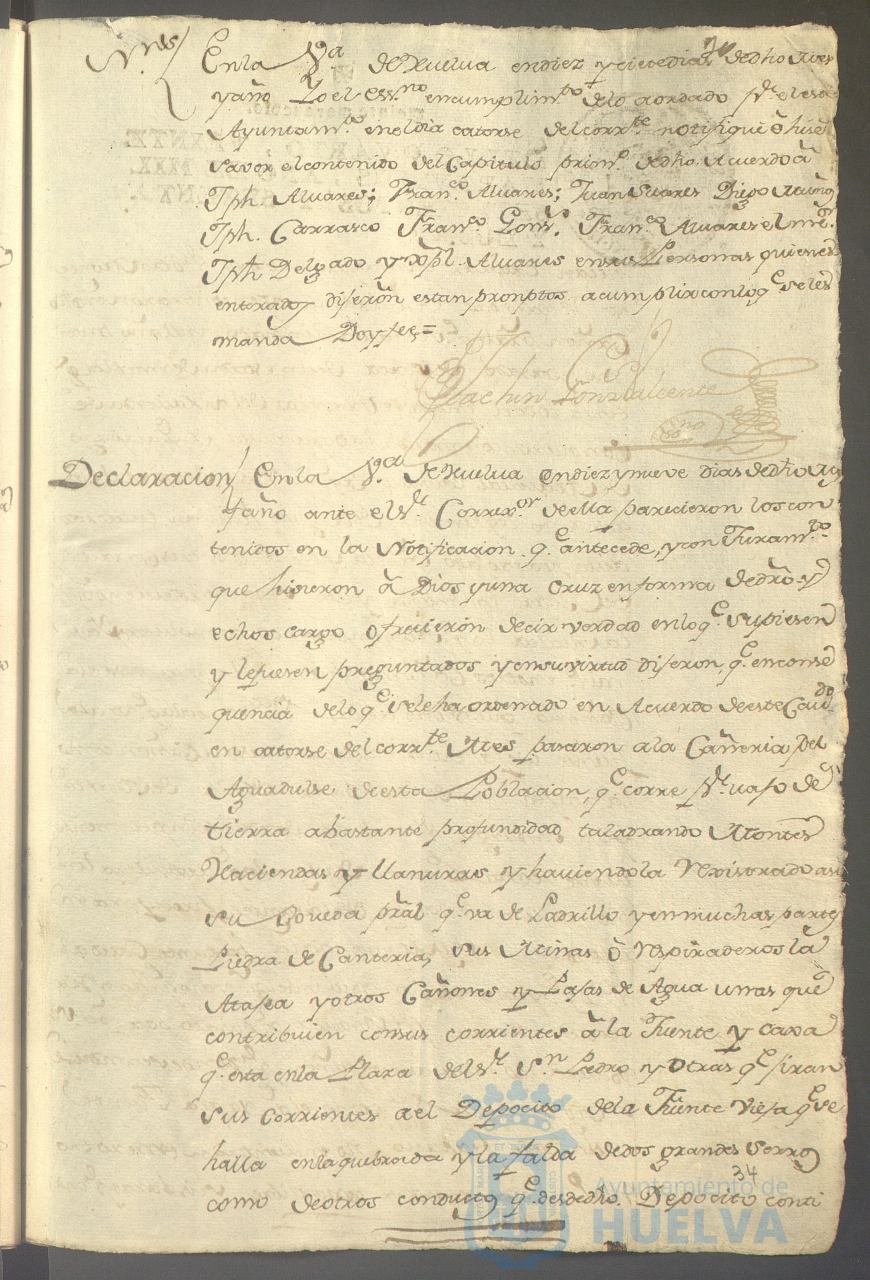 Nn.es/ En la V.a de Huelva en diez y siete dias de dho Mes
y año Yo el Ess.no en cumplim.to de lo acordado p.r el es.
Ayuntam.to en el dia catorse del corr.te notifiqué é hise
saver el contenido del Capitulo prim.o de dho Acuerdo á
Jph. Alvares; Fran.co Alvares; Juan Suares Diego
Jph. Carrasco Fran.co Gons.s Fran.co Alvares el m.r
Jph Delgado y Xpl. Alvares en sus Personas quienes
enterados dijeron estan promptos a cumplir con lo q.e se les
manda Doy fee =
Declaracion/ En la V.a de Huelva en diez y nueve dias de dho
y año ante el S.r Corrix.or de ella parecieron los con
tenidos en la Notificacion q.e antecede, y con Juram.to
que hicieron á Dios y una Cruz en forma de dro. y
echos cargo ofrecieron decir verdad en lo q.e supiesen
y le fuesen preguntados y en su virtud dijeron q.e en conse
quencia de lo q.e se le ha ordenado en Acuerdo de este Cav.do
en catorse del corr.te Mes pasaron a la Cañeria del
Agua dulse de esta Poblacion, q.e corre p.r vajo de
tierra a bastante profundidad taladrando Montes
Haciendas y llanuras y haviendola Rexistrado asi
su Boveda pral q.e es de Ladrillo y en muchas partes
Piedra de Canteria, sus Minas ó Respiraderos la
Atarea y otros Cañones y Pasas de Agua unas que
contribuien con sus corrientes á la Fuente y caxa
q.e esta en la Plaza del S.r S.n Pedro y otras q.e jiran
sus corrientes a el Depocito de la Fuente Vieja q.e se
halla en la quebrada y la falda de dos grandes Serros
como de otros conductos q.e desde dho. Depocito conti
34
Ayuntamiento de
HUELVA